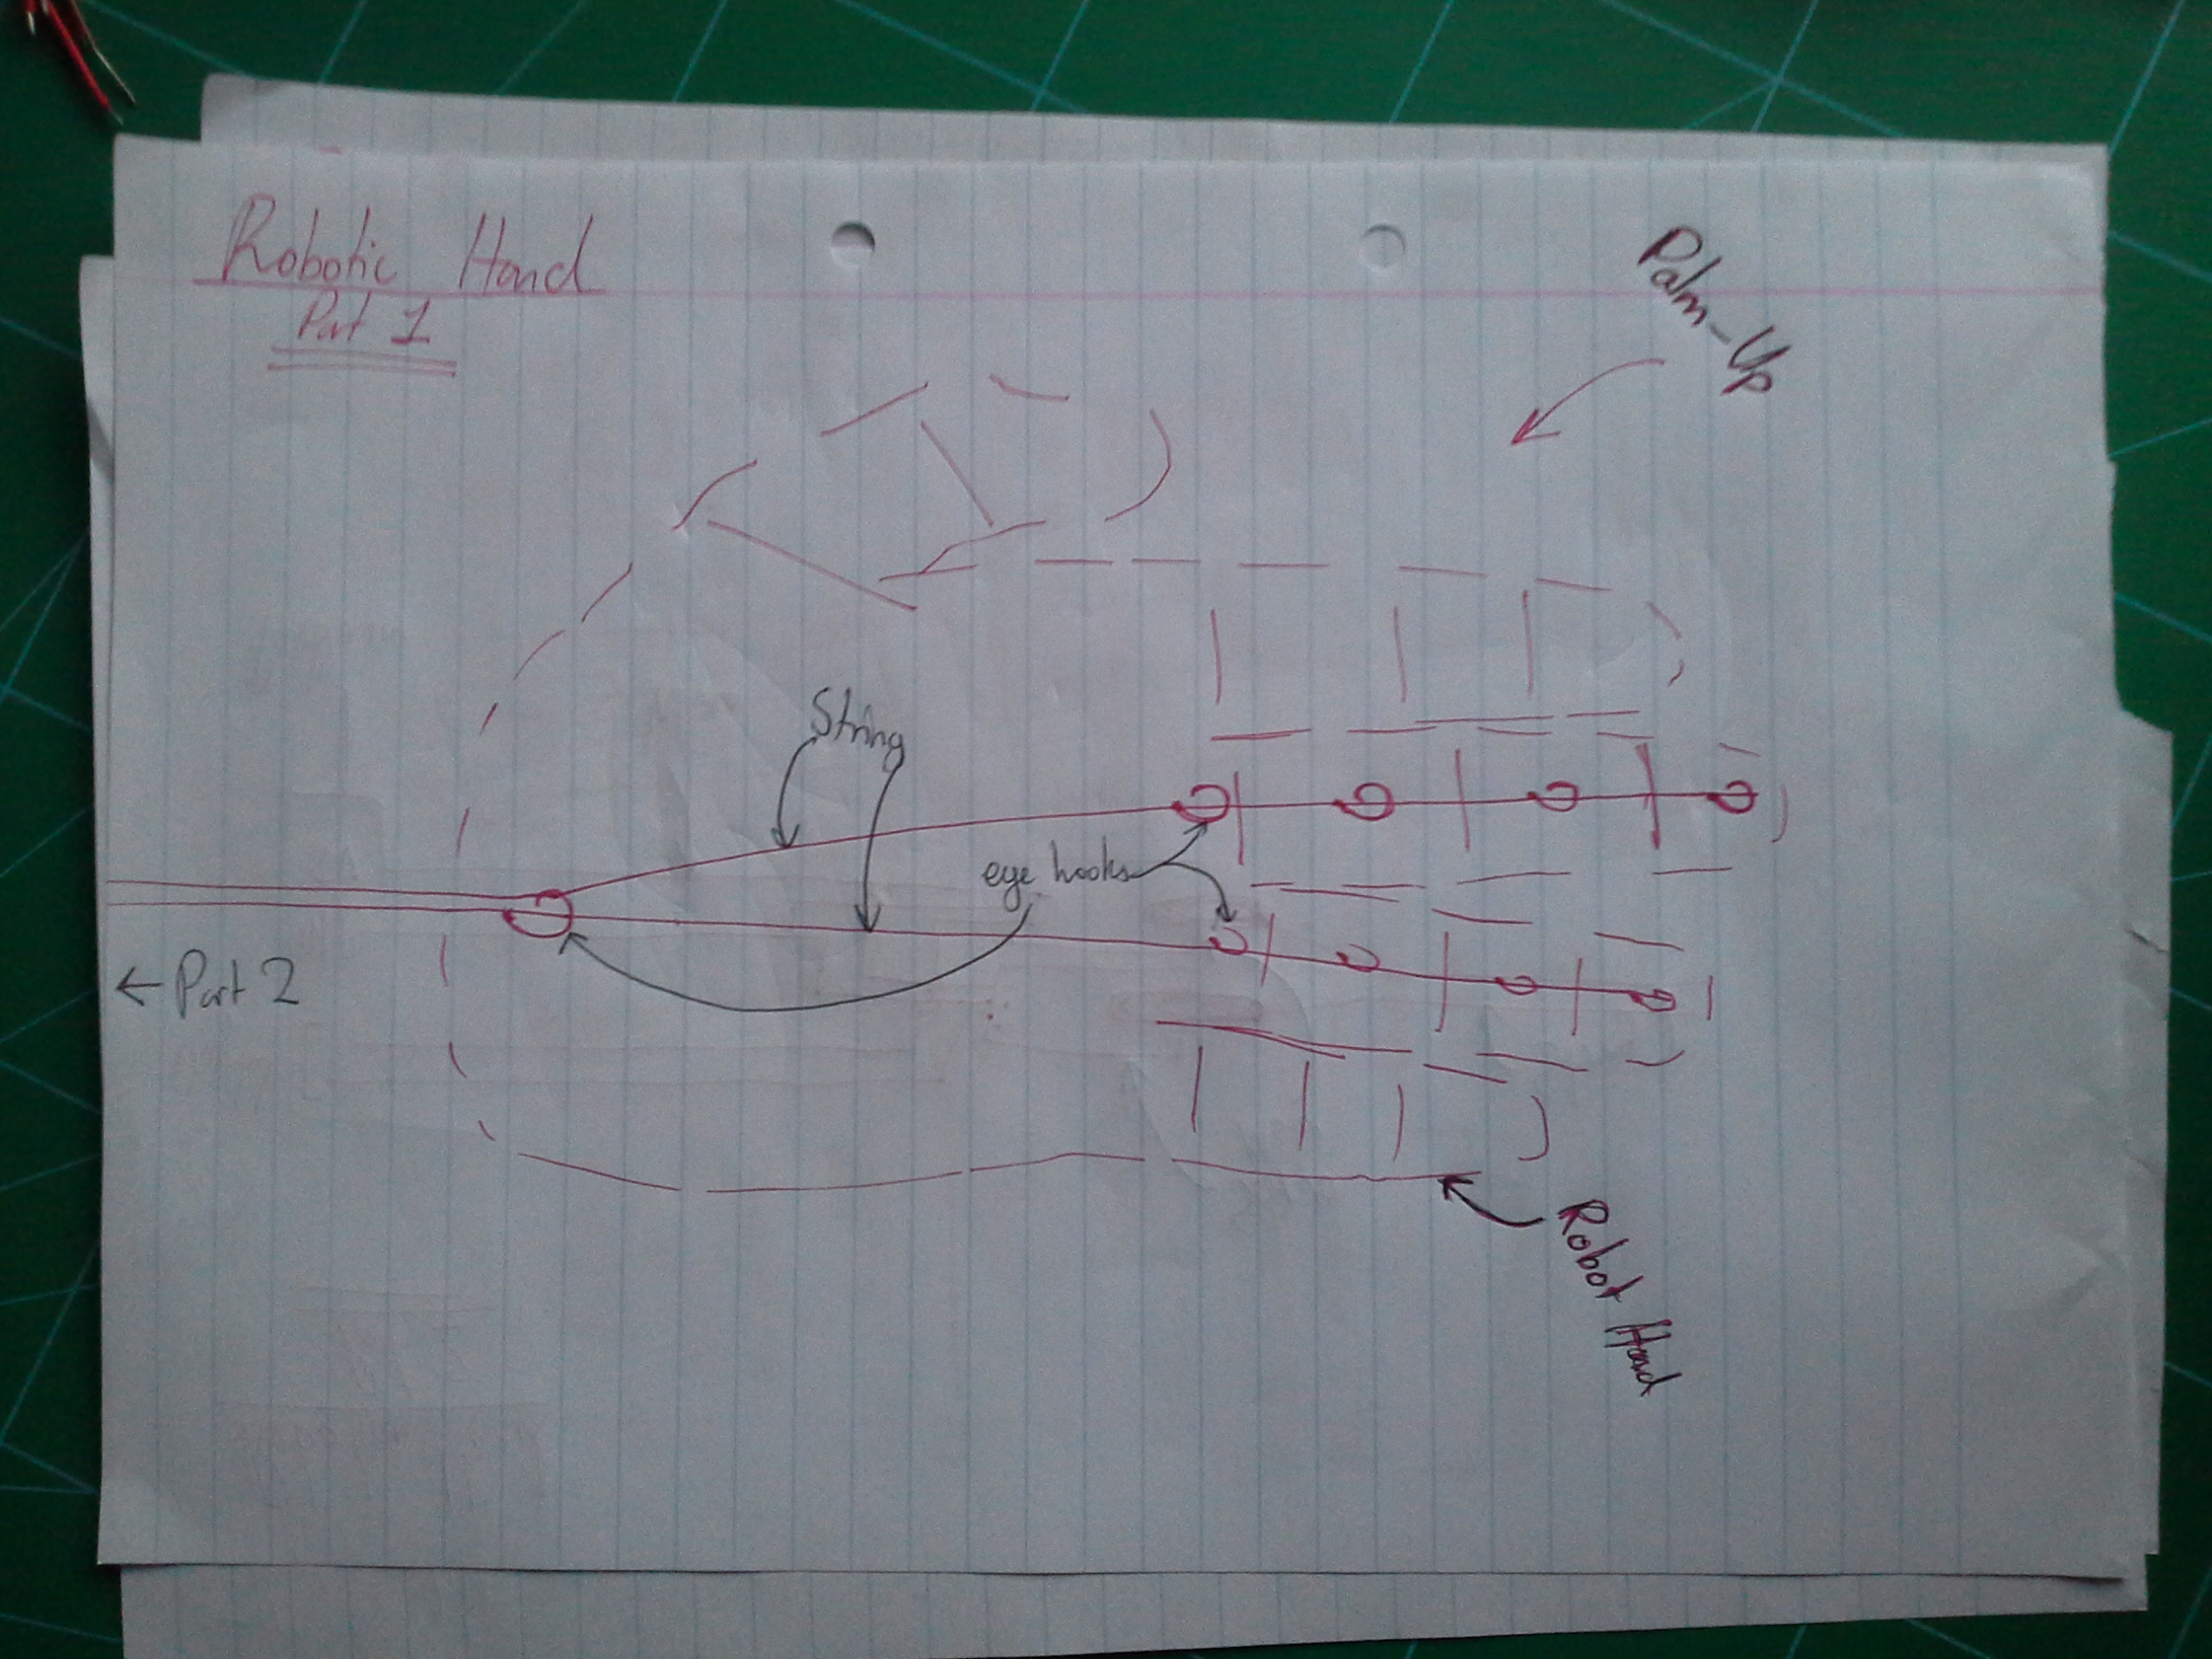 Robotic Hand
Part 1
Palm-Up
String
eye hooks
← Part 2
Robot Hand